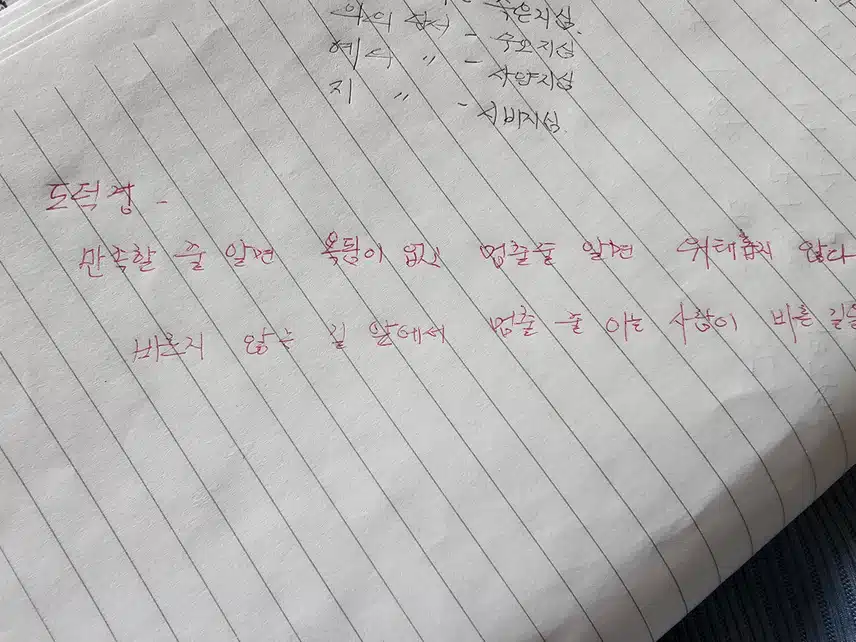 의의 단서 - 수오지심
예의 〃 - 사양지심
지 〃 - 시비지심
도덕경 -
만족할 줄 알면 욕됨이 없고 멈출줄 알면 위태롭지 않다
바르지 않는 길 앞에서 멈출 줄 아는 사람이 바른 길을